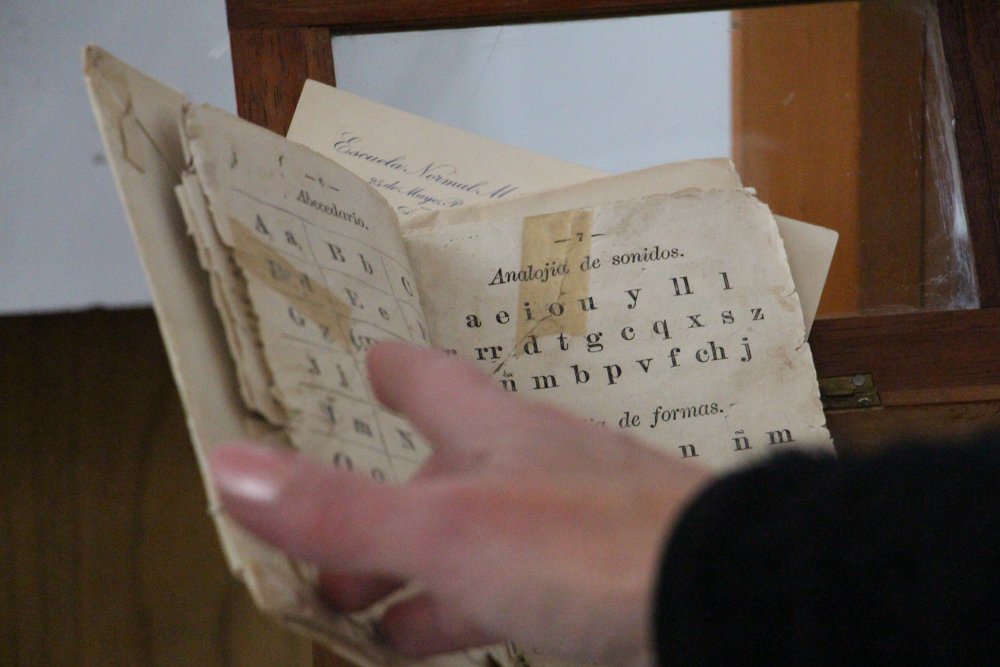 Escuela Normal M
25 de Mayo, P
— 6 —
Abecedario.
A a B b C
E e
G g
J j
m N
O o
— 7 —
Analojia de sonidos.
a e i o u y ll l
rr d t g c q x s z
ñ m b p v f ch j
de formas.
n ñ m